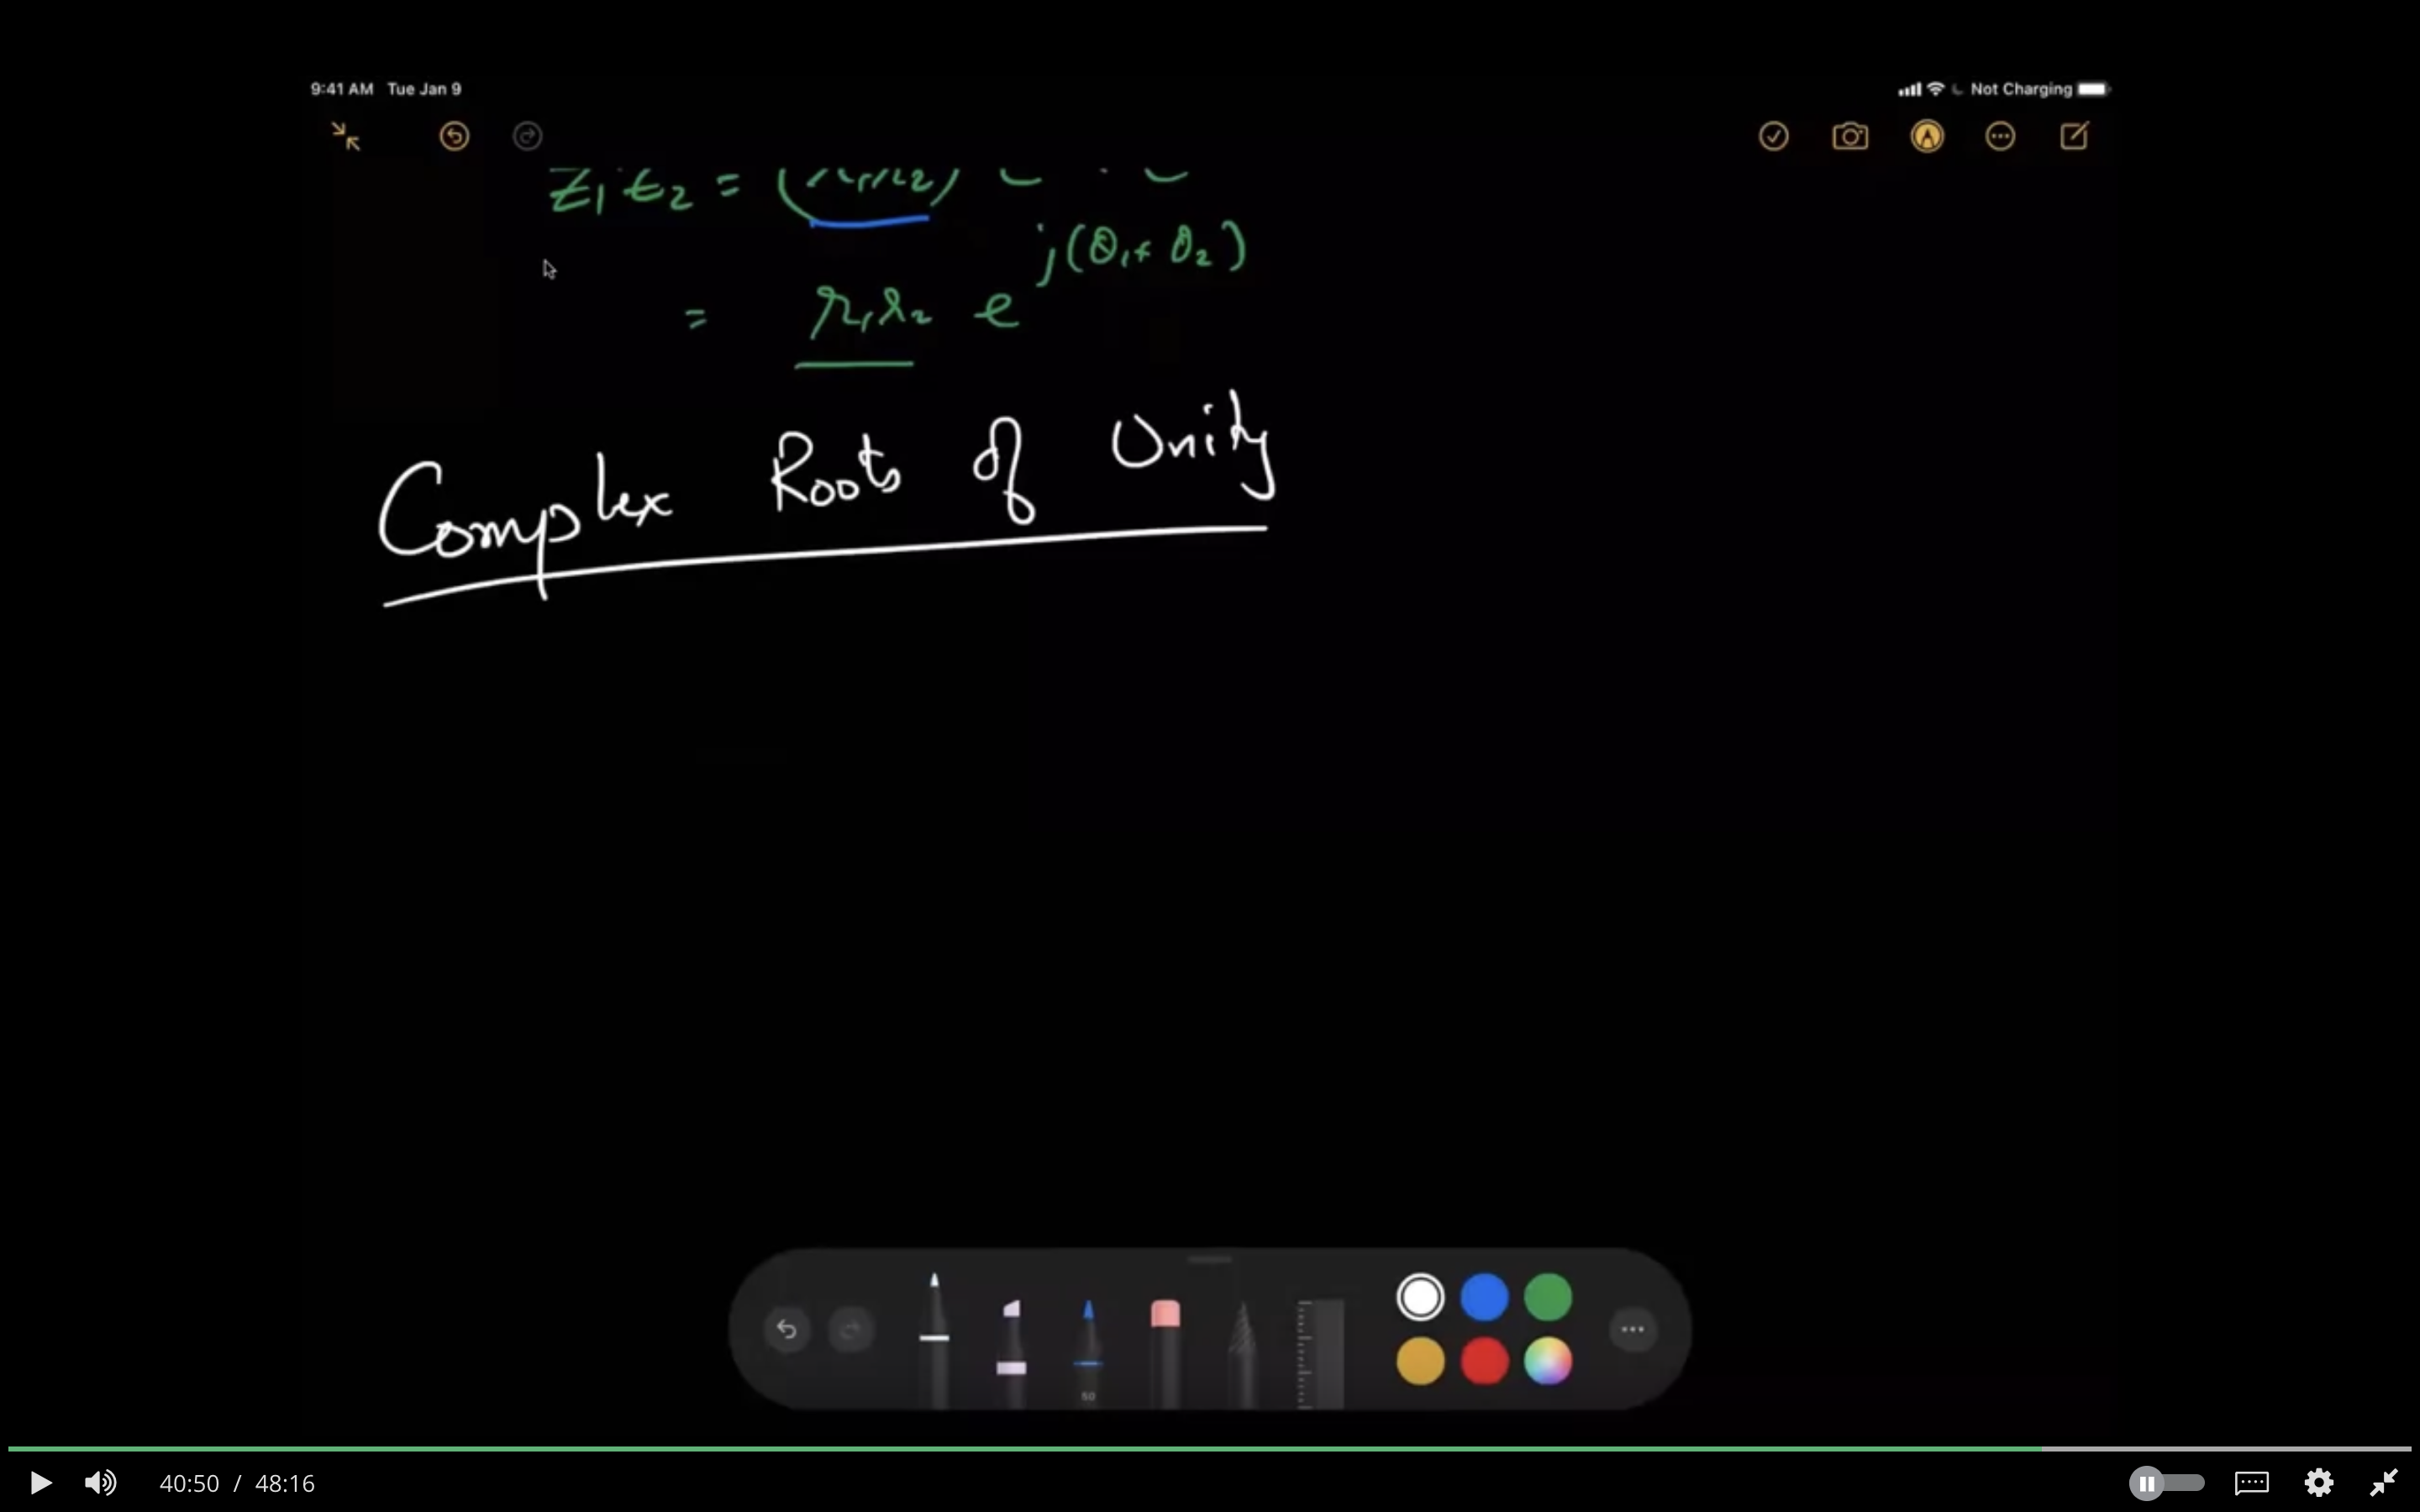 9:41 AM Tue Jan 9
Not Charging
Z₁ Z₂ = (r₁r₂)
= r₁r₂ e^j(θ₁+θ₂)
Complex Roots of Unity
50
40:50 / 48:16